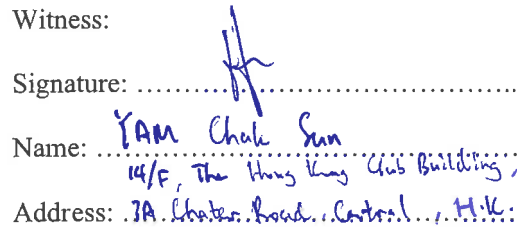 Witness:
Signature:
Name: YAM Chak Sun
14/F, The Hong Kong Club Building,
Address: 3A Chater Road, Central, H.K.